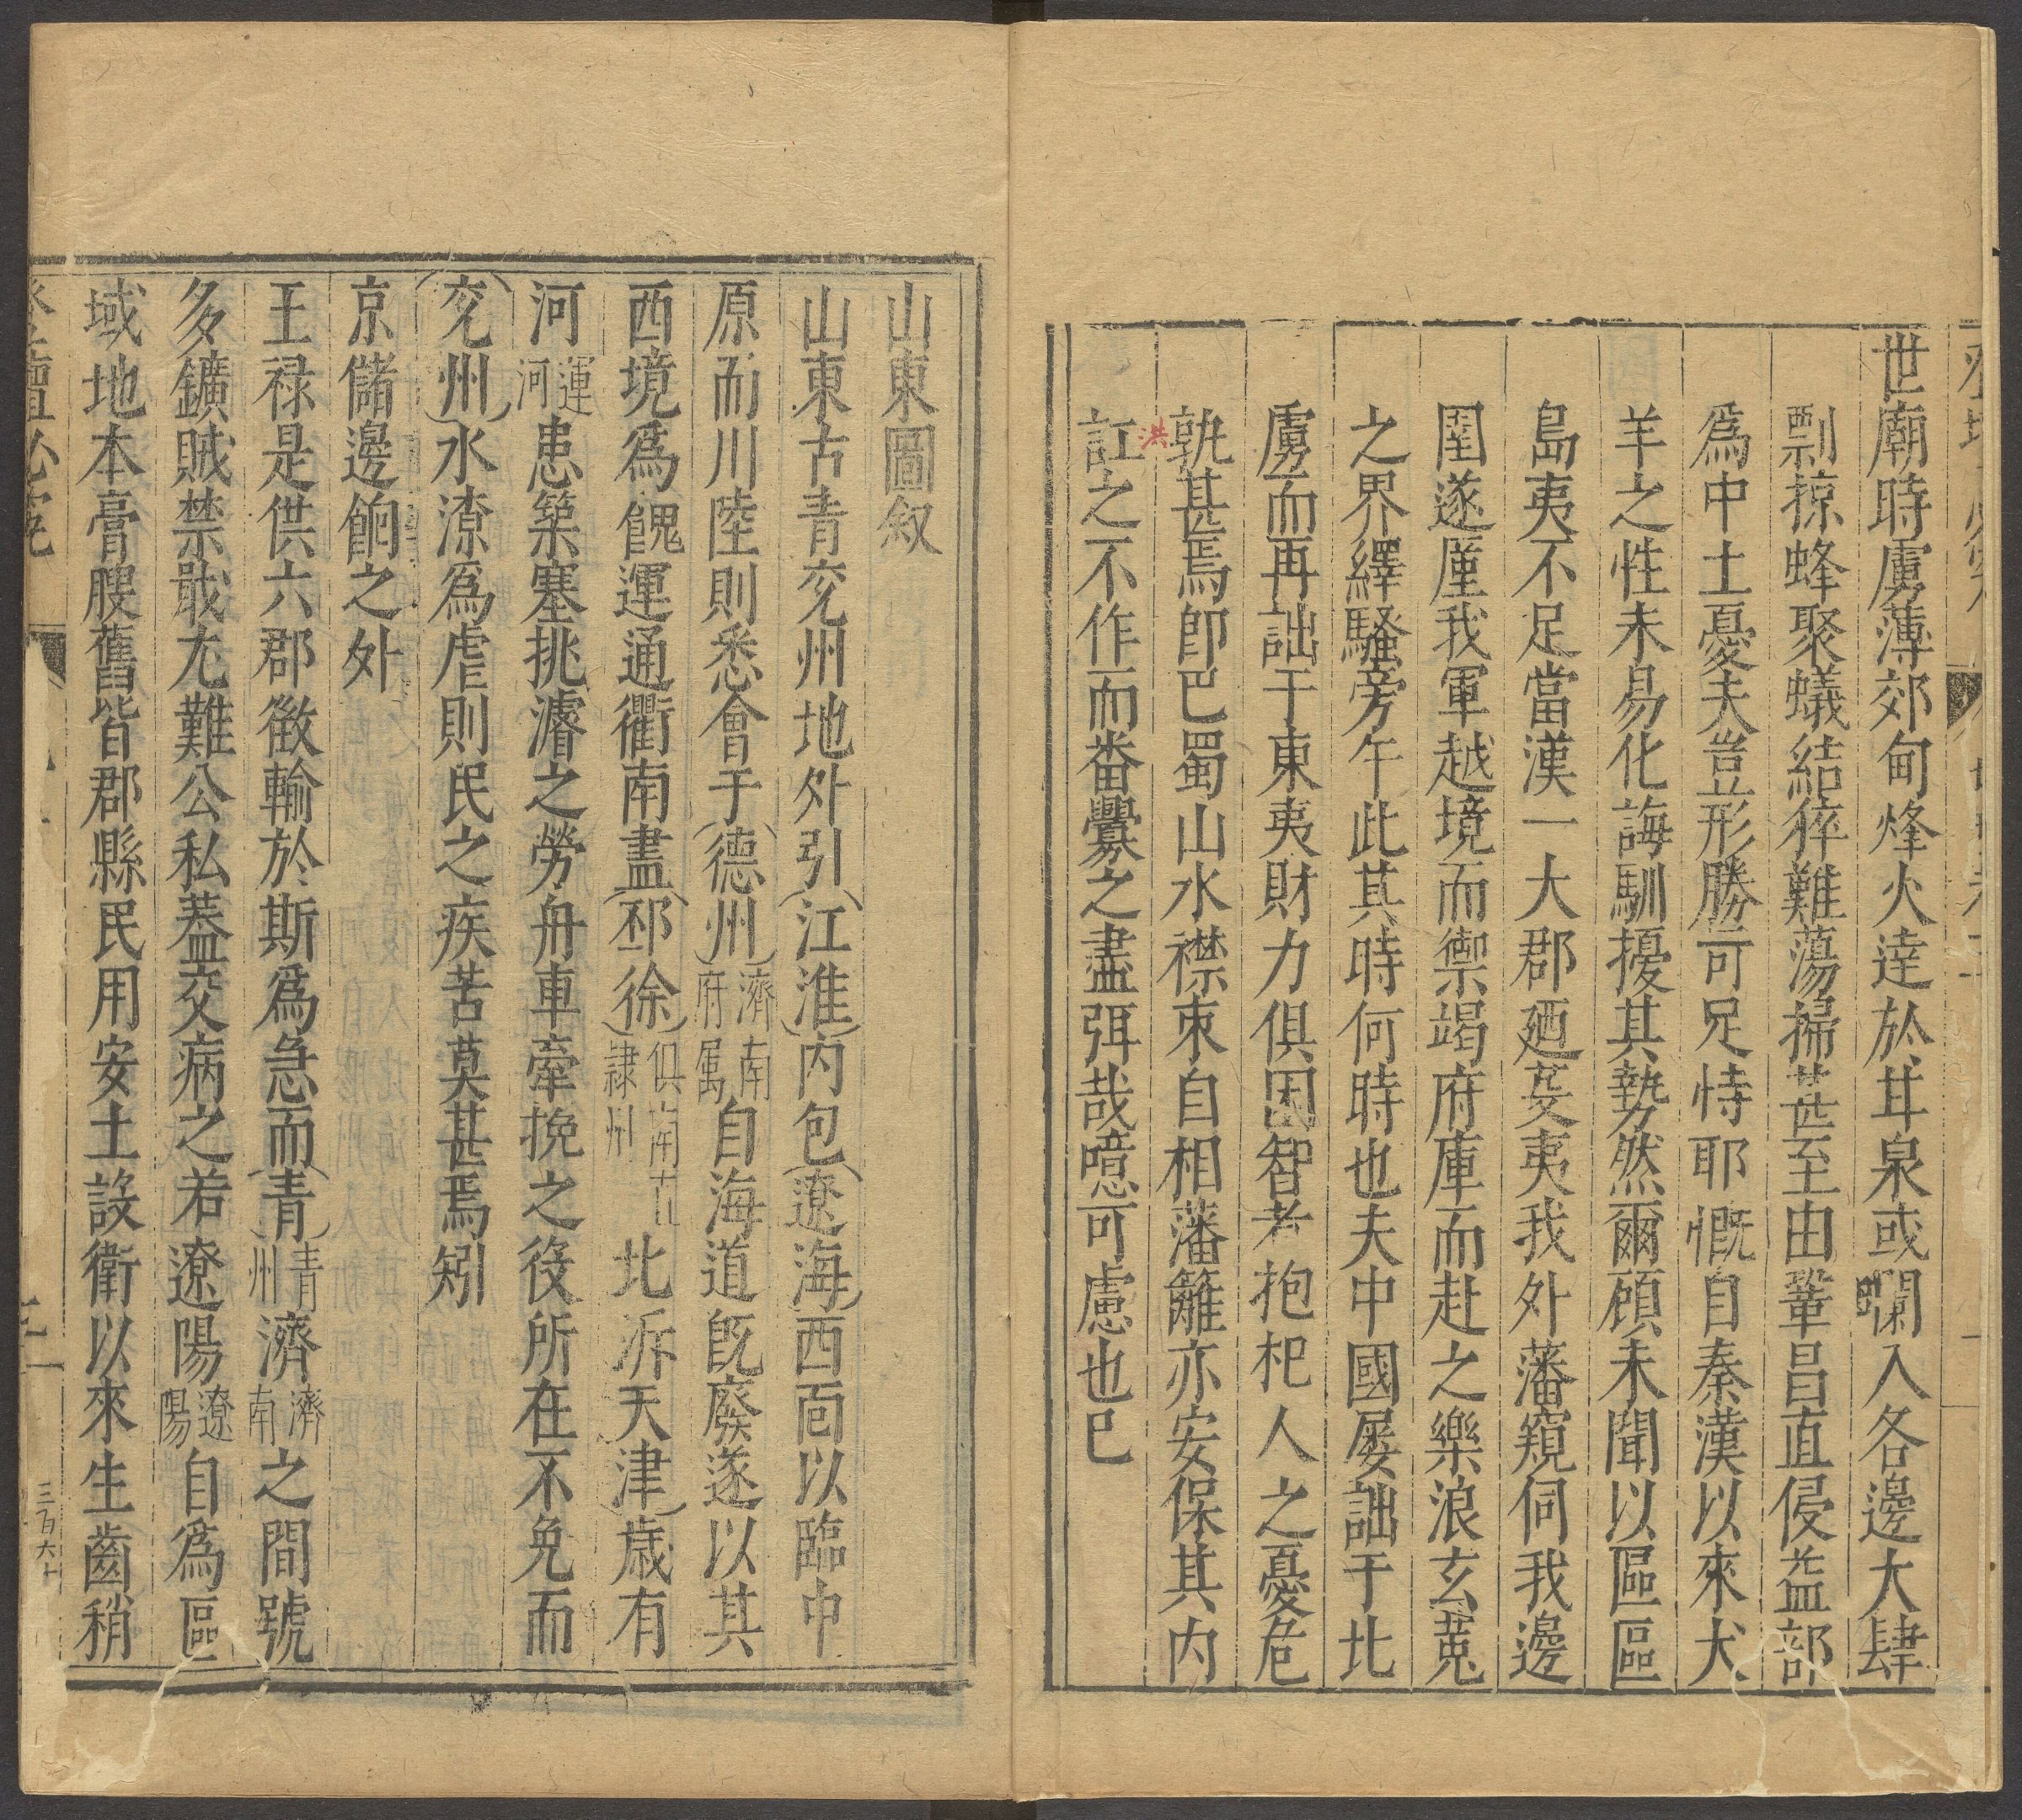 世廟時虜薄郊甸烽火達於甘泉或闌入各邊大肆
剽掠蜂聚蟻結猝難蕩掃甚至由鞏昌直侵益部
爲中土憂夫豈形勝可足恃耶慨自秦漢以來犬
羊之性未易化誨馴擾其勢然爾頋未聞以區區
島夷不足當漢一大郡廼芟夷我外藩窺伺我邊
圉遂厪我軍越境而禦竭府庫而赴之樂浪玄菟
之界繹騷旁午此其時何時也夫中國屡詘于北
虜而再詘于東夷財力俱困智者抱杞人之憂危
孰甚焉卽巴蜀山水襟束自相藩籬亦安保其内
訌之不作而畨釁之盡弭哉噫可慮也已
洪
山東圖叙
山東古青兖州地外引江淮内包遼海西面以臨中
原而川陸則悉會于德州濟南府属自海道既廢遂以其
西境爲餽運通衢南盡邳徐俱南直隷州北泝天津歳有
河運河患築塞挑濬之勞舟車牽挽之役所在不免而
兖州水潦爲虐則民之疾苦莫甚焉矧
京儲邊餉之外
王禄是供六郡徵輸於斯爲急而青青州濟濟南之間號
多鑛賊禁戢尤難公私葢交病之若遼陽遼陽自爲區
域地本膏腴舊皆郡縣民用安土設衛以來生齒稍
三百六十